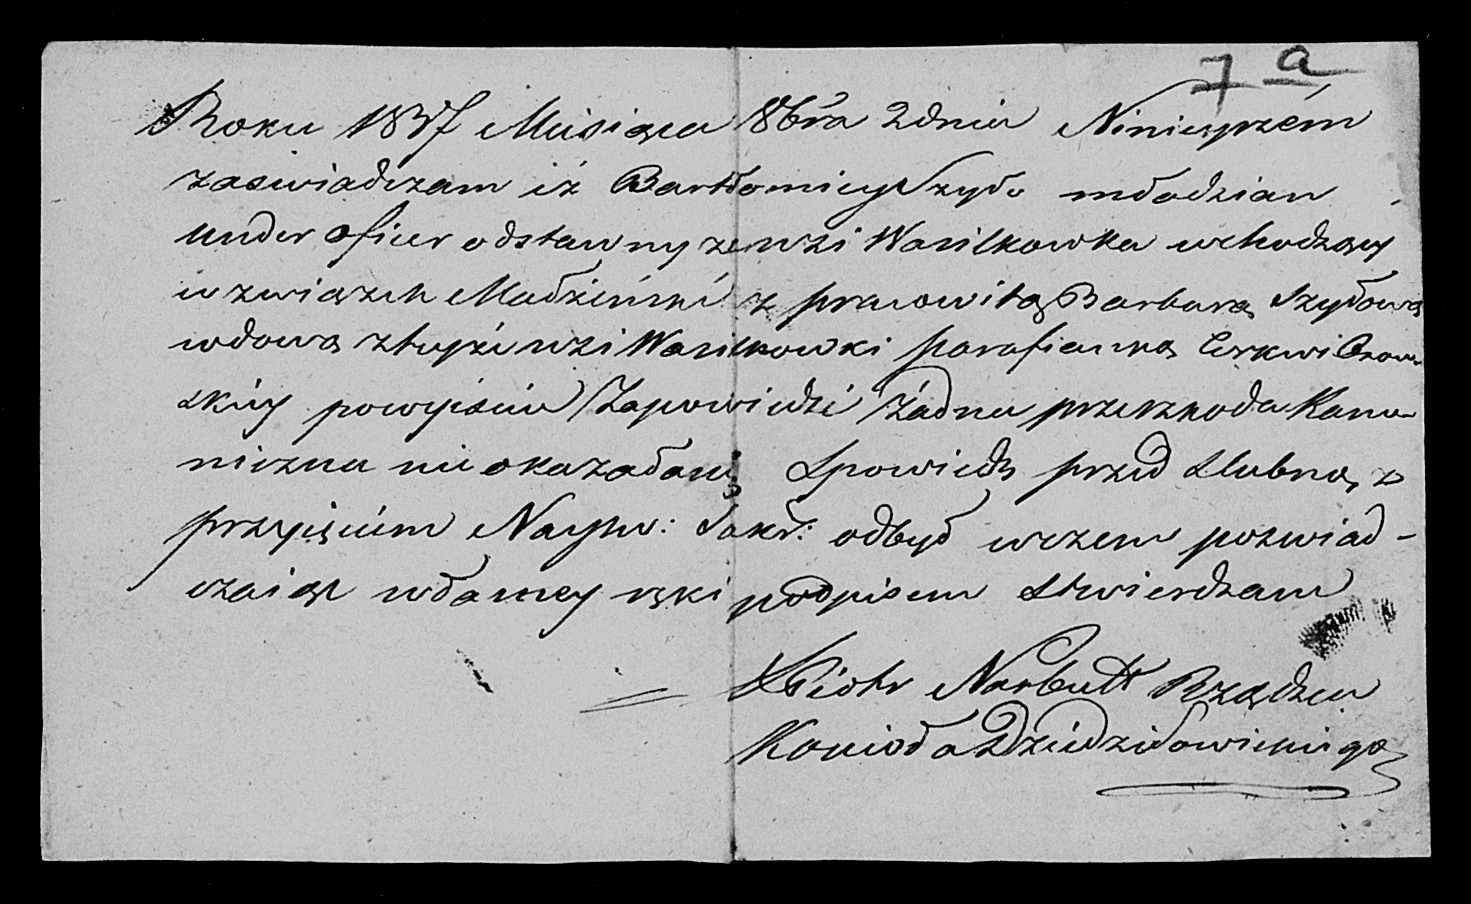 7 a
Roku 1837 Miesiąca 8bra 2 dnia Ninieyszém
zaswiadczam iż Bartłomiey Szyło młodzian
under oficer odstawny ze wsi Wasilkowka wchodzący
w związek Małżeński z pracowitą Barbarą Szydową
wdową z tuyże wsi Wasilkowki parafianką Cerkwi
skiey powyisciu Zapowiedzi Żadna przeszkoda Kano
niczna nie okazała się Spowiedz przed Slubną z
przyięciem Nayśw: Sakr: odbył wczem poswiad-
czaiąc własney ręki podpisem Stwierdzam
X Piotr Narbutt Rządzca
Kościoła Dziedziłowickiego